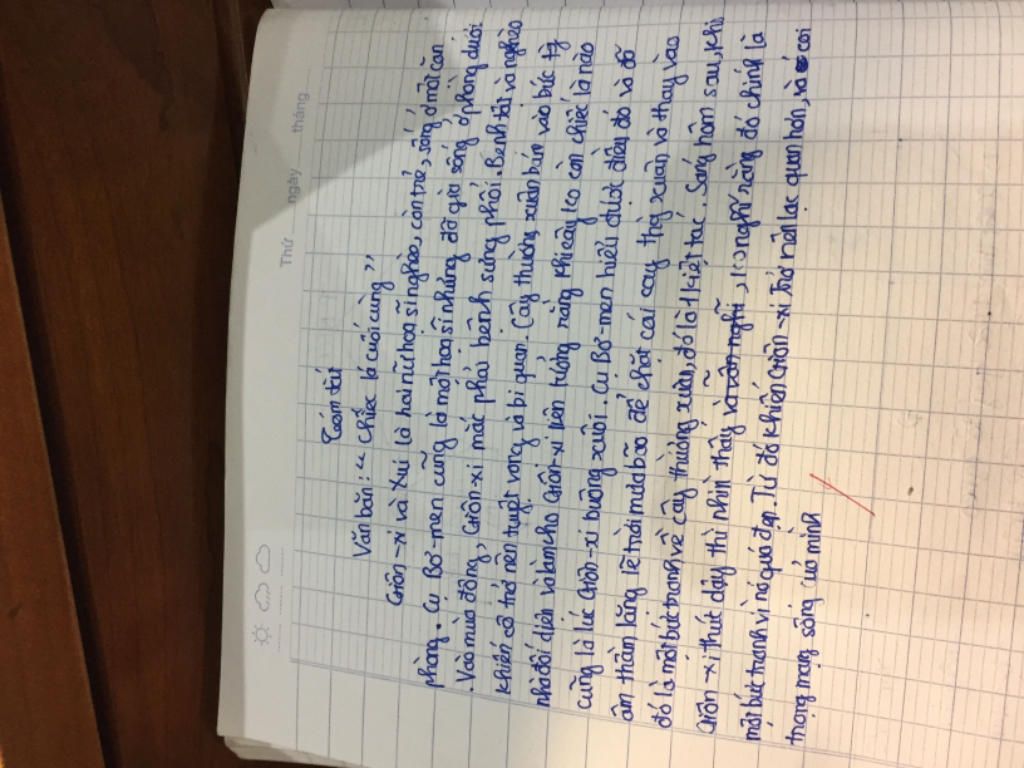 Thứ ngày tháng
Tóm tắt
Văn bản: "Chiếc lá cuối cùng"
Giôn-xi và Xiu là hai nữ họa sĩ nghèo, còn trẻ, sống ở một căn
phòng. Cụ Bơ-men cũng là một họa sĩ nhưng đã già sống ở phòng dưới.
Vào mùa đông, Giôn-xi mắc phải bệnh sưng phổi. Bệnh tật và nghèo
khiến cô trở nên tuyệt vọng và bi quan. Cây thường xuân bám vào bức tg
nhà đối diện và làm cho Giôn-xi liên tưởng rằng khi cây ko còn chiếc lá nào
cũng là lúc Giôn-xi buông xuôi. Cụ Bơ-men hiểu được điều đó và đã
âm thầm lặng lẽ trải mưa bão để chặt cái cây thg xuân và thay vào
đó là một bức tranh vẽ cây thường xuân, đó là 1 kiệt tác. Sáng hôm sau, khi
Giôn-xi thức dậy thì nhìn thấy và vẫn nghĩ, ko nghĩ rằng đó chính là
một bức tranh vì nó quá đẹp. Từ đó khiến Giôn-xi trở nên lạc quan hơn, và coi
trọng mạng sống của mình